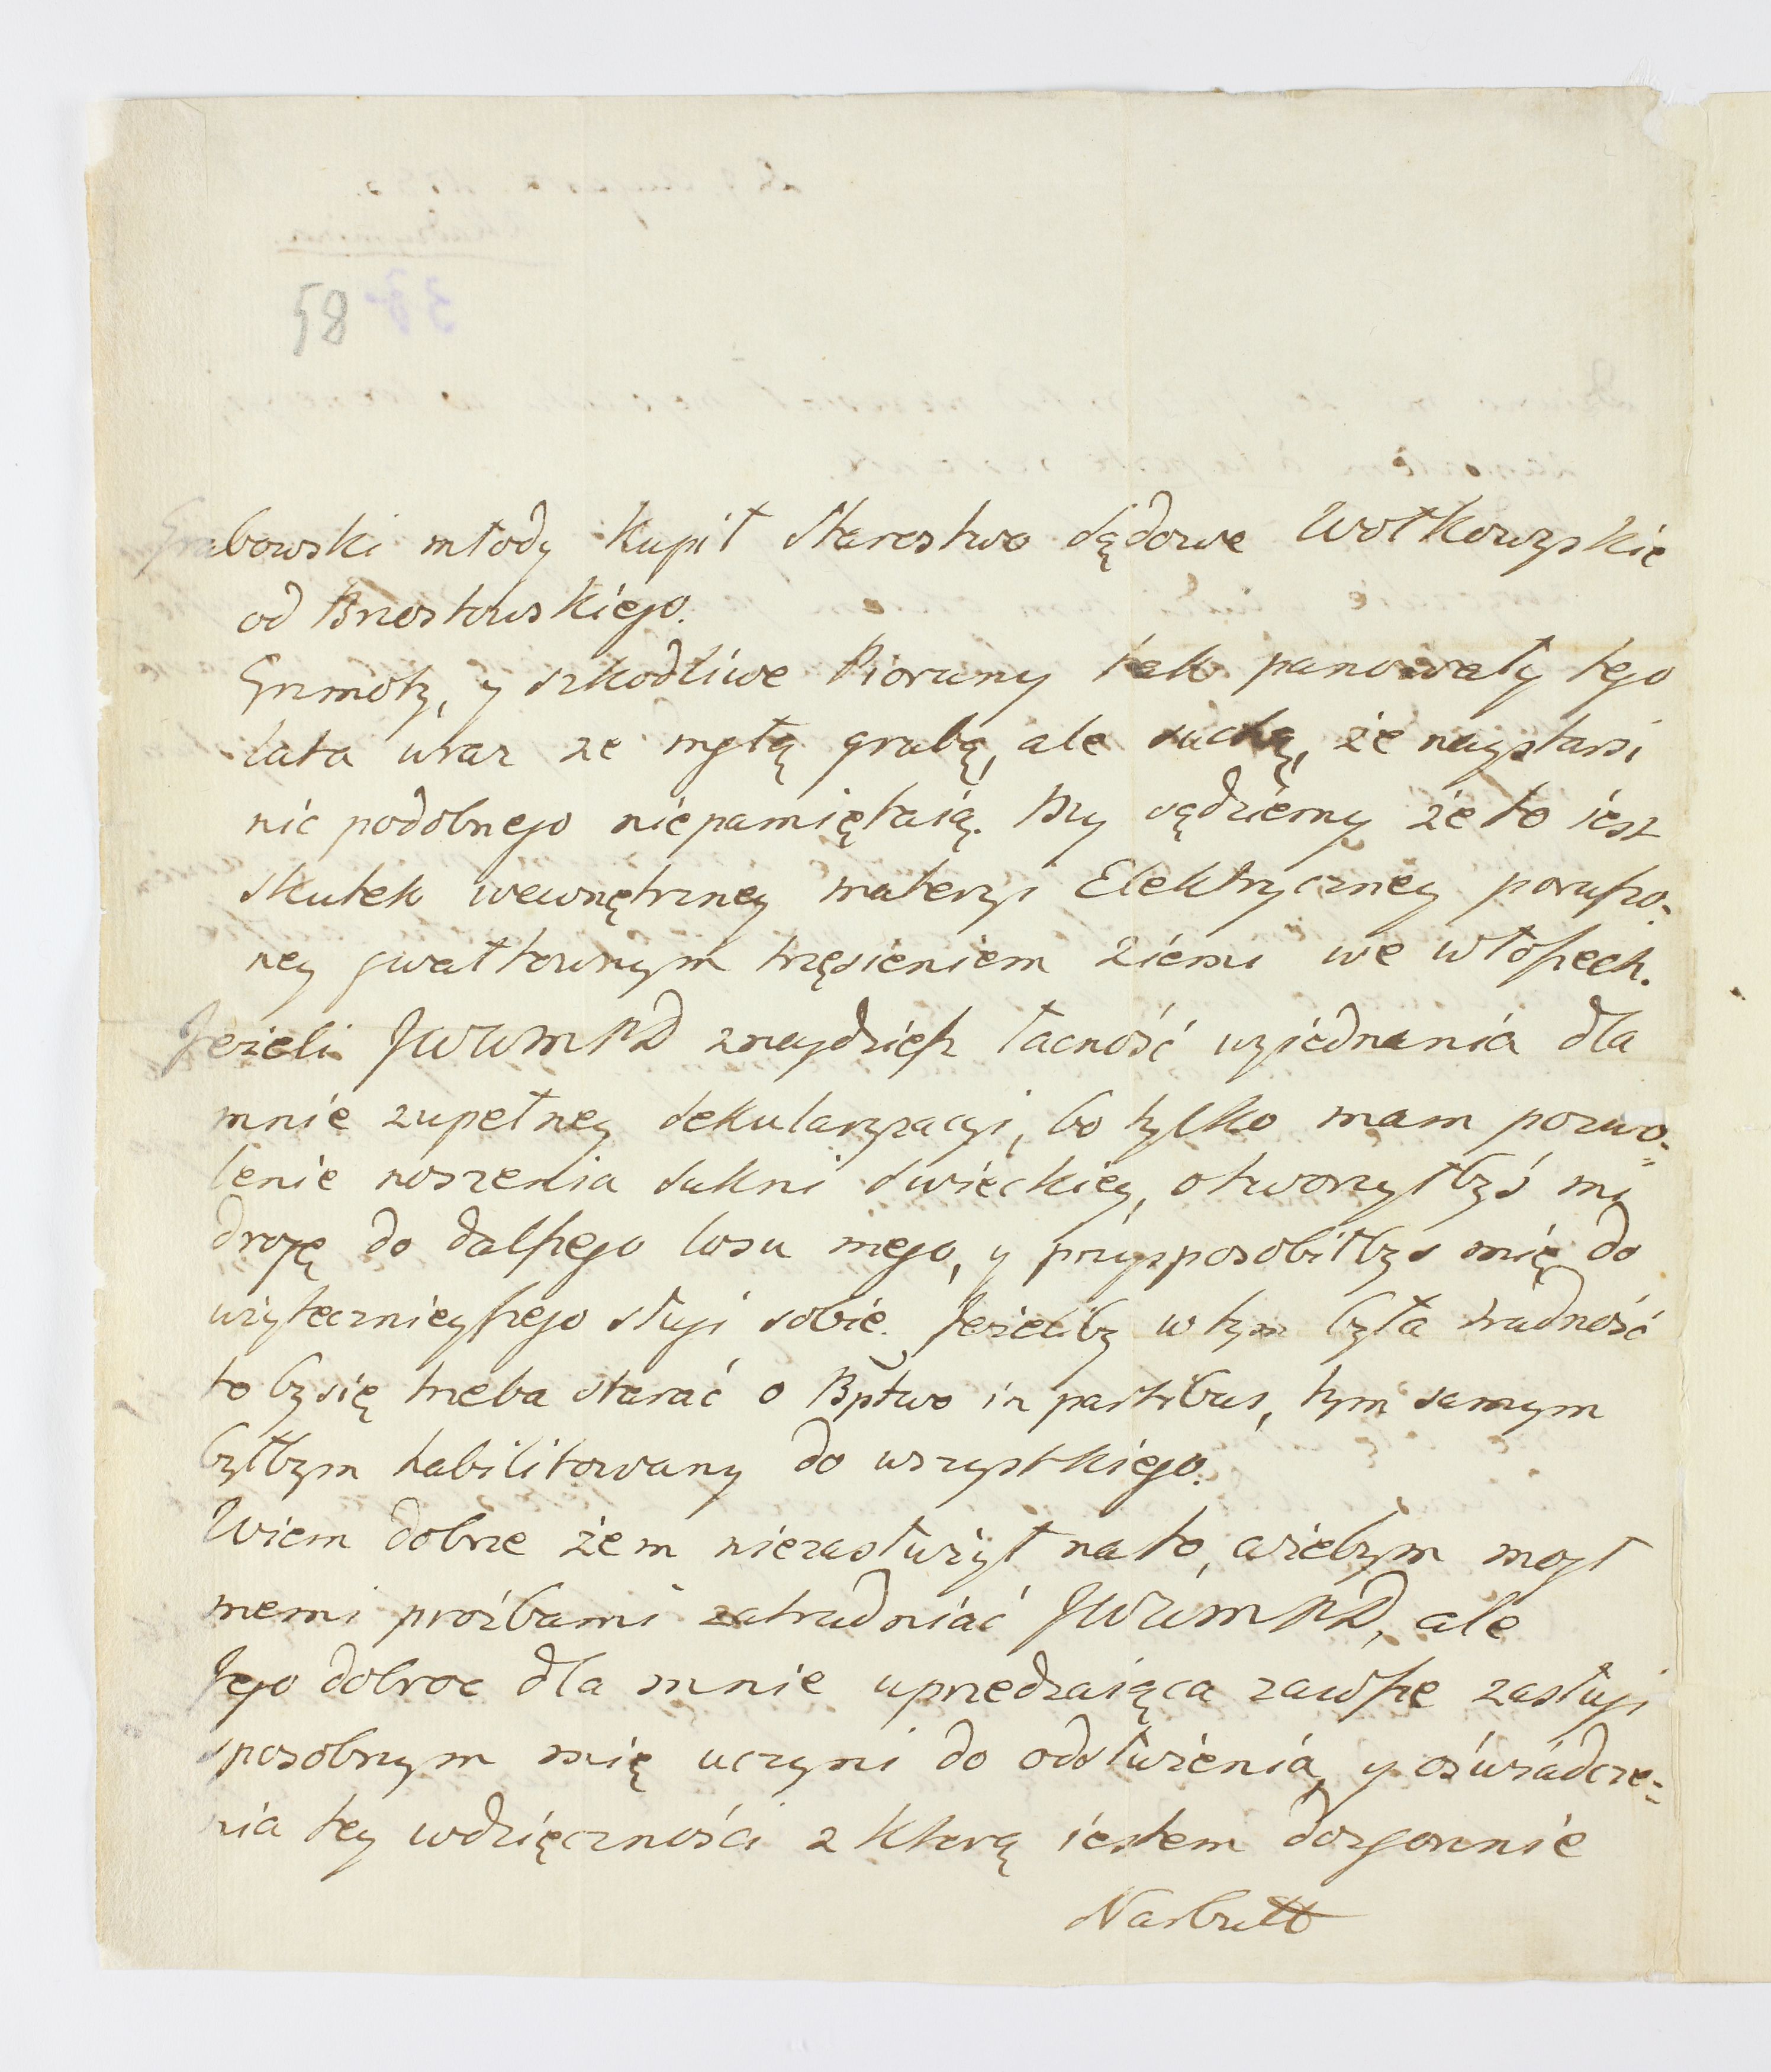 58
Grabowski młody kupił Starostwo sądowe Wołkowyskie
od Brzostowskiego.
Grzmoty, y szkodliwe Pioruny tak panowały tego
lata wraz ze mgłą grubą, ale suchą, że naystarsi
nic podobnego niepamiętaią. My sądziemy że to iest
skutek wewnętrzney materyi Elektryczney poruszo=
ney gwałtownym trzęsieniem ziemi we Włoszech.
Jeżeli JWWMPD znaydziesz łacność uziednania dla
mnie zupełney sekularyzacyi, bo tylko mam pozwo=
lenie noszenia sukni swieckiey, otworzyłbyś mi
drogę do dalszego losu mego, y przysposobiłbyś mię do
użytecznieyszego sługi sobie. Jeżeliby w tym była trudność
to by się trzeba starać o Bptwo in partibus, tym samym
byłbym habilitowany do wszystkiego.
Wiem dobrze żem niezasłużył na to, ażebym mogł
memi proźbami zatrudniać JWWMPD, ale
Jego dobroc dla mnie uprzedzaiąca zawsze zasługi
sposobnym mię uczyni do odsłużenia, y oświadcze=
nia tey wdzięczności z ktorą iestem dozgonnie
Narbutt